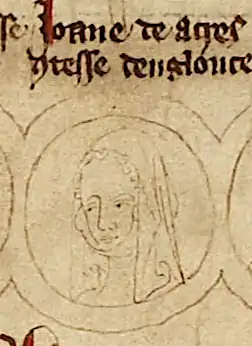 Ioane de acres
ntesse denglouce